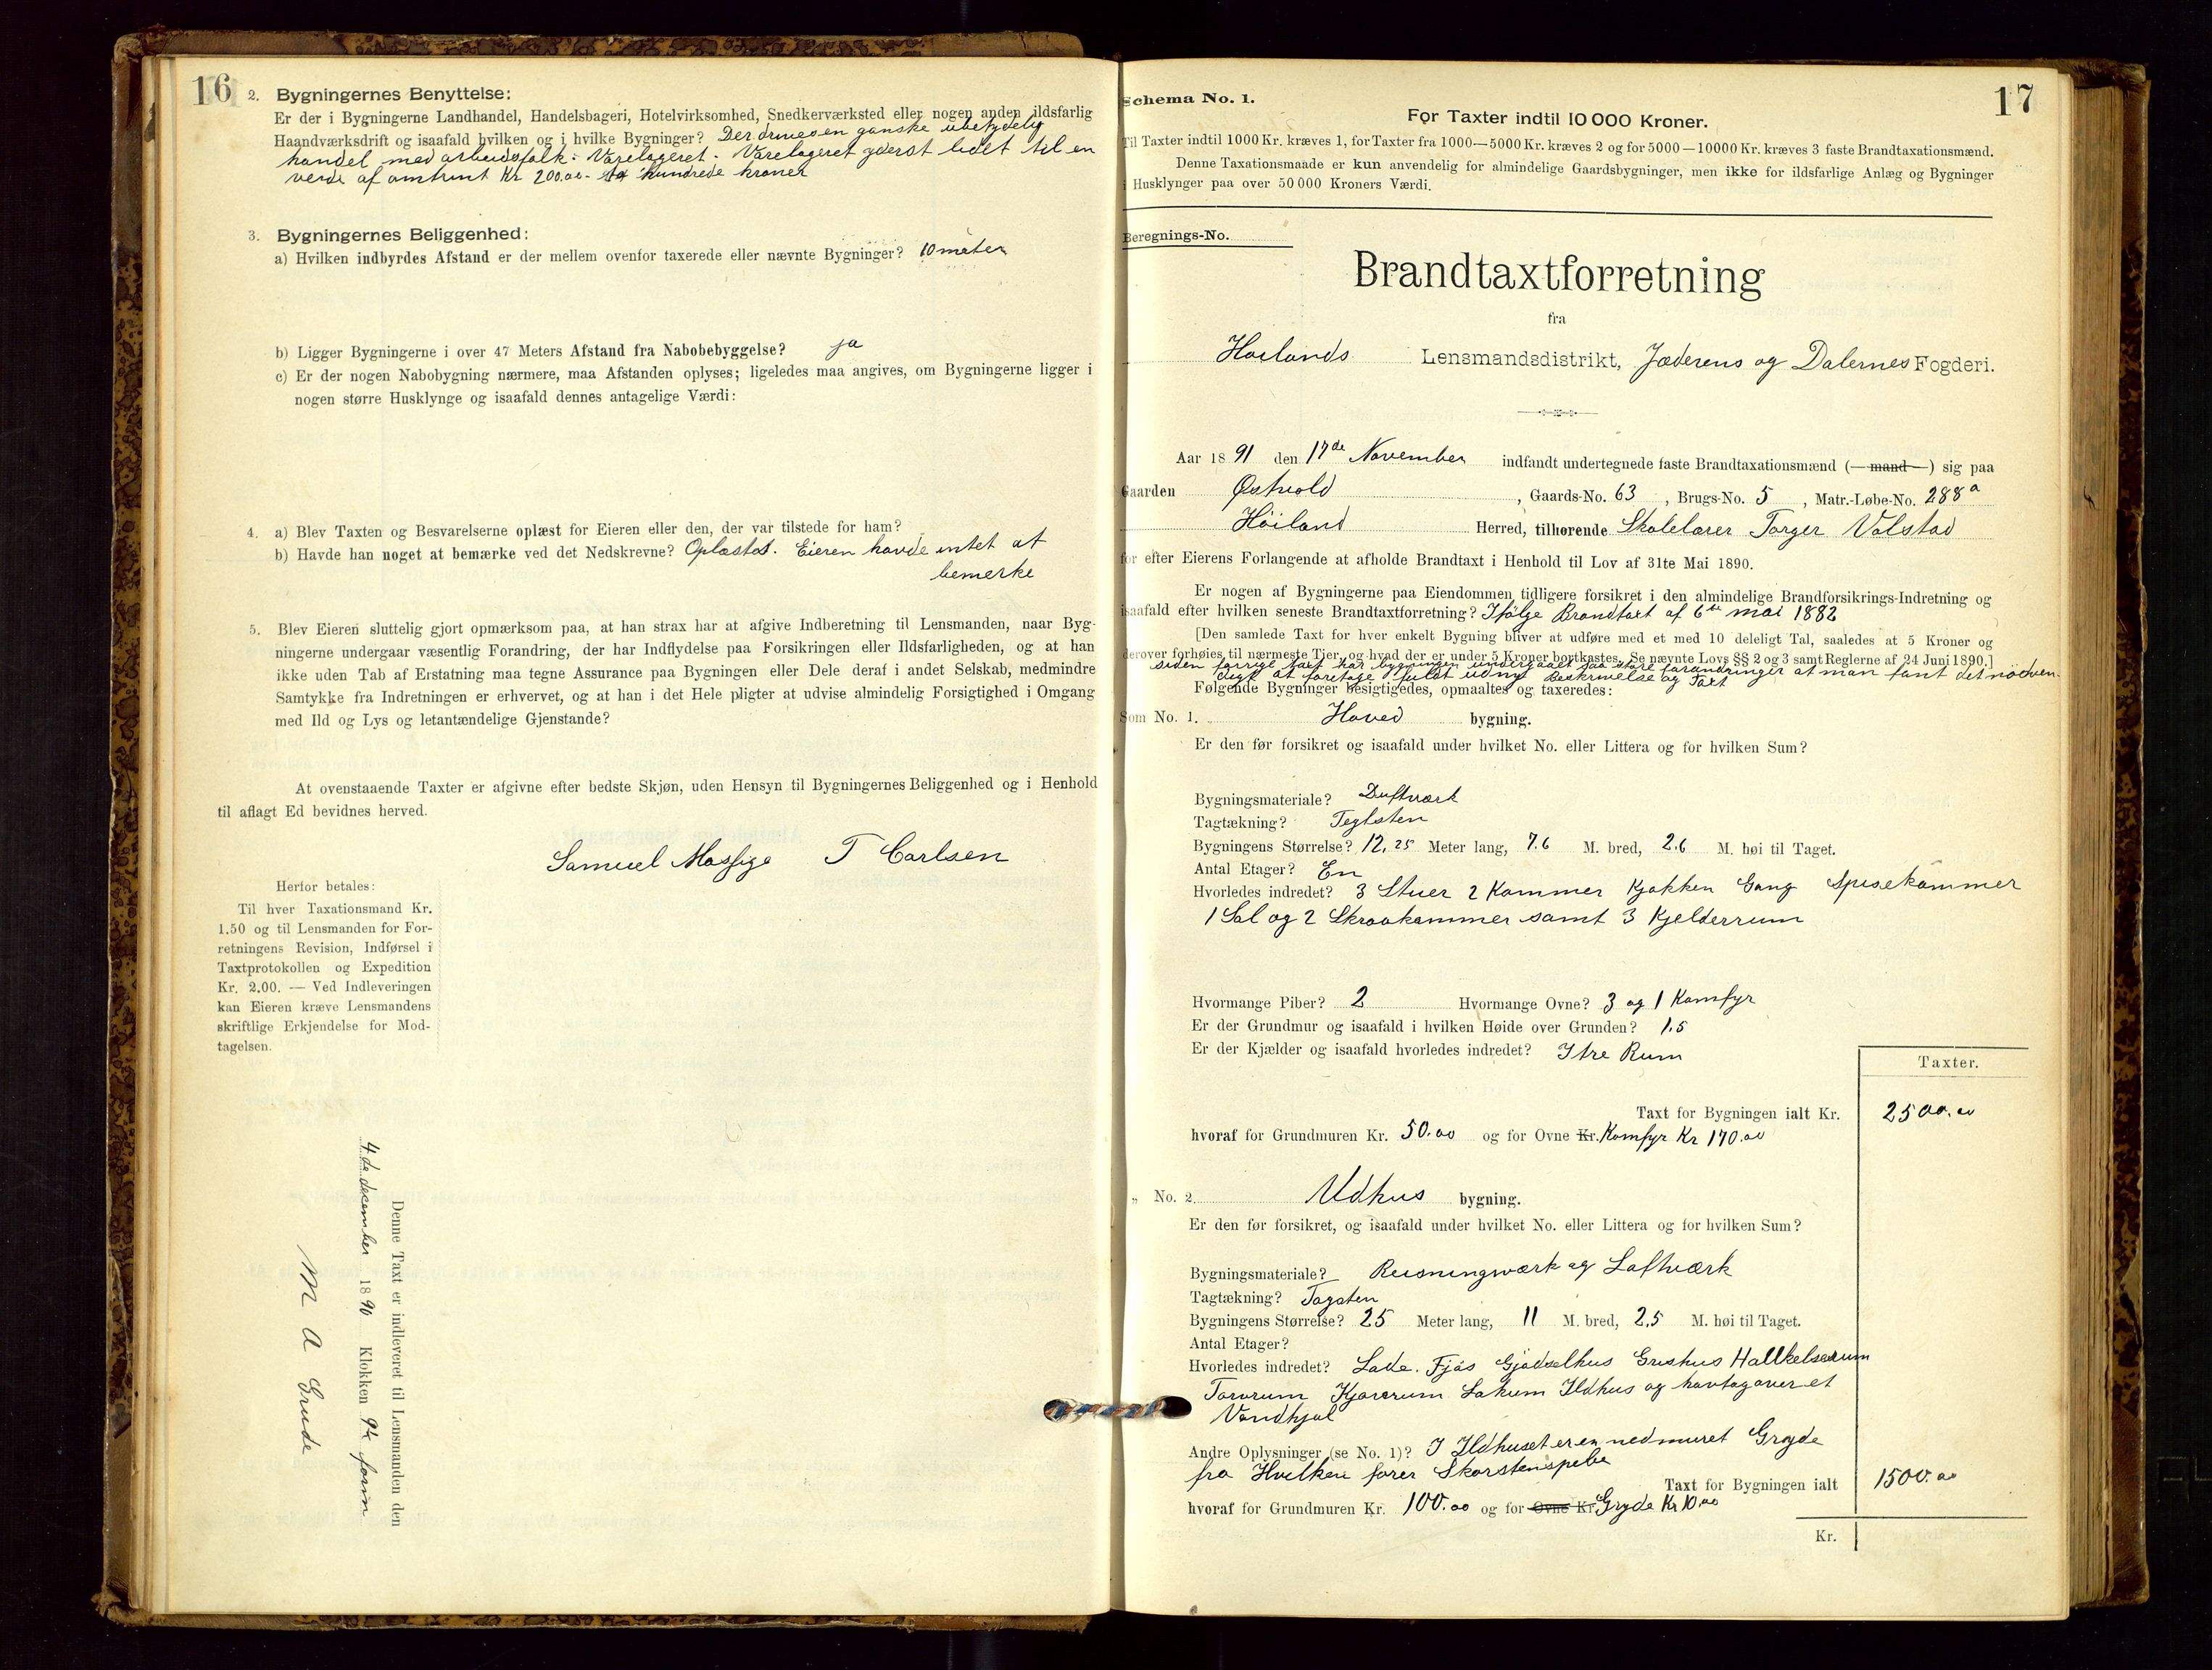 16
2. Bygningernes Benyttelse:
Er der i Bygningerne Landhandel, Handelsbageri, Hotelvirksomhed, Snedkerværksted eller nogen anden ildsfarlig
Haandværksdrift og isaafald hvilken og i hvilke Bygninger? Der drives en ganske ubetydelig
handel med arbeidsfolk. Varelageret. Varelageret yderst lidet til en
verde af omtrent Kr 200.00 - to hundrede kroner
3. Bygningernes Beliggenhed:
a) Hvilken indbyrdes Afstand er der mellem ovenfor taxerede eller nævnte Bygninger? 10 meter
b) Ligger Bygningerne i over 47 Meters Afstand fra Nabobebyggelse? ja
c) Er der nogen Nabobygning nærmere, maa Afstanden oplyses; ligeledes maa angives, om Bygningerne ligger i
nogen større Husklynge og isaafald dennes antagelige Værdi:
4. a) Blev Taxten og Besvarelserne oplæst for Eieren eller den, der var tilstede for ham?
b) Havde han noget at bemærke ved det Nedskrevne? Oplæstes. Eieren havde intet at
bemerke
5. Blev Eieren sluttelig gjort opmærksom paa, at han strax har at afgive Indberetning til Lensmanden, naar Byg-
ningerne undergaar væsentlig Forandring, der har Indflydelse paa Forsikringen eller Ildsfarligheden, og at han
ikke uden Tab af Erstatning maa tegne Assurance paa Bygningen eller Dele deraf i andet Selskab, medmindre
Samtykke fra Indretningen er erhvervet, og at han i det Hele pligter at udvise almindelig Forsigtighed i Omgang
med Ild og Lys og letantændelige Gjenstande?
At ovenstaaende Taxter er afgivne efter bedste Skjøn, uden Hensyn til Bygningernes Beliggenhed og i Henhold
til aflagt Ed bevidnes herved.
Samuel Mossige T Carlsen
Herfor betales:
Til hver Taxationsmand Kr.
1.50 og til Lensmanden for For-
retningens Revision, Indførsel i
Taxtprotokollen og Expedition
Kr. 2.00. — Ved Indleveringen
kan Eieren kræve Lensmandens
skriftlige Erkjendelse for Mod-
tagelsen.
Denne Taxt er indleveret til Lensmanden den
4de december 1890 Klokken 9½ form
M A Grude
17
Schema No. 1.
For Taxter indtil 10 000 Kroner.
Til Taxter indtil 1000 Kr. kræves 1, for Taxter fra 1000—5000 Kr. kræves 2 og for 5000—10000 Kr. kræves 3 faste Brandtaxationsmænd.
Denne Taxationsmaade er kun anvendelig for almindelige Gaardsbygninger, men ikke for ildsfarlige Anlæg og Bygninger
i Husklynger paa over 50 000 Kroners Værdi.
Beregnings-No.
Brandtaxtforretning
fra
Høilands Lensmandsdistrikt, Jæderens og Dalernes Fogderi.
Aar 1891 den 17de November indfandt undertegnede faste Brandtaxationsmænd (—mand—) sig paa
Gaarden Østvold, Gaards-No. 63, Brugs-No. 5, Matr.-Løbe-No. 288a
Høiland Herred, tilhørende Skolelærer Torger Valstad
for efter Eierens Forlangende at afholde Brandtaxt i Henhold til Lov af 31te Mai 1890.
Er nogen af Bygningerne paa Eiendommen tidligere forsikret i den almindelige Brandforsikrings-Indretning og
isaafald efter hvilken seneste Brandtaxtforretning? Ifølge Brandtaxt af 6te mai 1882
[Den samlede Taxt for hver enkelt Bygning bliver at udføre med et med 10 deleligt Tal, saaledes at 5 Kroner og
derover forhøies til nærmeste Tier, og hvad der er under 5 Kroner bortkastes. Se nævnte Lovs §§ 2 og 3 samt Reglerne af 24 Juni 1890.]
siden forrige taxt har bygningen undergaaet saa store forandringer at man fant det nödven-
digt at foretage fuldt udny Beskrivelse og Taxt
Følgende Bygninger besigtigedes, opmaaltes og taxeredes:
Som No. 1. Hoved bygning.
Er den før forsikret og isaafald under hvilket No. eller Littera og for hvilken Sum?
Bygningsmateriale?
Tagtækning? Teglsten
Bygningens Størrelse? 12,25 Meter lang, 7.6 M. bred, 2.6 M. høi til Taget.
Antal Etager? En
Hvorledes indredet? 3 Stuer 2 Kammer Kjøkken Gang Spisekammer
1 Sal og 2 Skraakammer samt 3 Kjelderrum
Hvormange Piber? 2 Hvormange Ovne? 3 og 1 Komfyr
Er der Grundmur og isaafald i hvilken Høide over Grunden? 1.5
Er der Kjælder og isaafald hvorledes indredet? I tre Rum
Taxter.
Taxt for Bygningen ialt Kr. 2500.00
hvoraf for Grundmuren Kr. 50.00 og for Ovne Kr. Komfyr Kr 170.00
„ No. 2. Udhus bygning.
Er den før forsikret, og isaafald under hvilket No. eller Littera og for hvilken Sum?
Bygningsmateriale? Reisningværk og Laftværk
Tagtækning? Tagsten
Bygningens Størrelse? 25 Meter lang, 11 M. bred, 2,5 M. høi til Taget.
Antal Etager?
Hvorledes indredet? Lade. Fjös Gjödselhus Grishus Hakkelserum
Torvrum Kjørerum Ildhus og
Vandhjul
Andre Oplysninger (se No. 1)? I Ildhuset er en nedmuret Gryde
fra Hvilken fører Skorstenspibe
Taxt for Bygningen ialt 1500.00
hvoraf for Grundmuren Kr. 100.00 og for Ovne Kr. Gryde Kr 10.00
Kr.